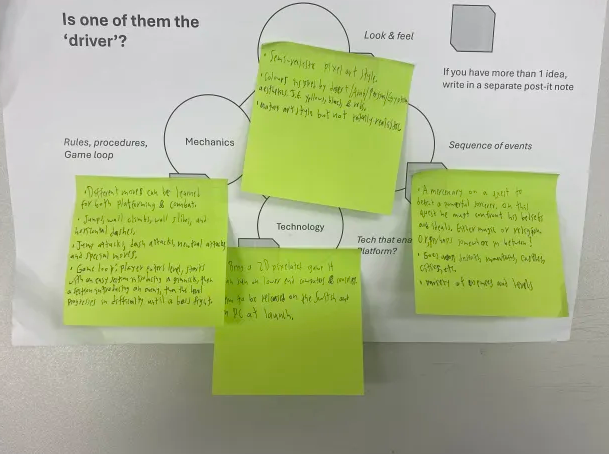 Is one of them the
'driver'?
Look & feel
If you have more than 1 idea,
write in a separate post-it note
Rules, procedures,
Game loop
Mechanics
Sequence of events
Technology
Tech that ena
Platform?
• Semi-realistic pixel art style.
• Colours inspired by desert/
aesthetics. I.E yellows, blacks & reds.
• Mature art style but not totally realistic.
• Different moves can be learned
for both platforming & combat.
• Jumps, wall climbs, wall slides, and
horizontal dashes.
• Jump attacks, dash attacks, neutral attacks
and special moves.
• Game loop: player enters level, starts
with an easy section introducing a gimmick, then
a section introducing an enemy, then the level
progresses in difficulty until a boss fight.
Being a 2D pixelated game it
can run on lower end computers & consoles.
to be released on the Switch and
PC at launch.
• A mercenary on a quest to
defeat a powerful sorcerer, on this
quest he must confront his beliefs
and ideals. Either magic or religion
Or perhaps somewhere in between?
• Goes through mountains, castles,
cities, etc.
• consist of and levels.